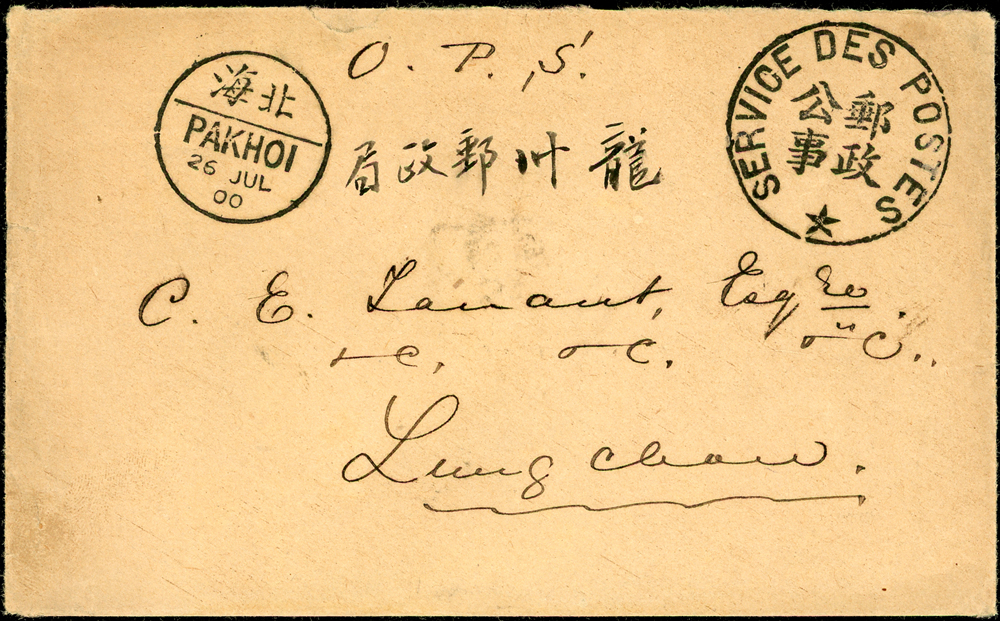 O. P. S.
海北
PAKHOI
26 JUL
00
SERVICE DES POSTES
郵政
公事
局政郵州龍
C. E. Tanant, Esqre.
&c. &c. &c..
Lungchow.